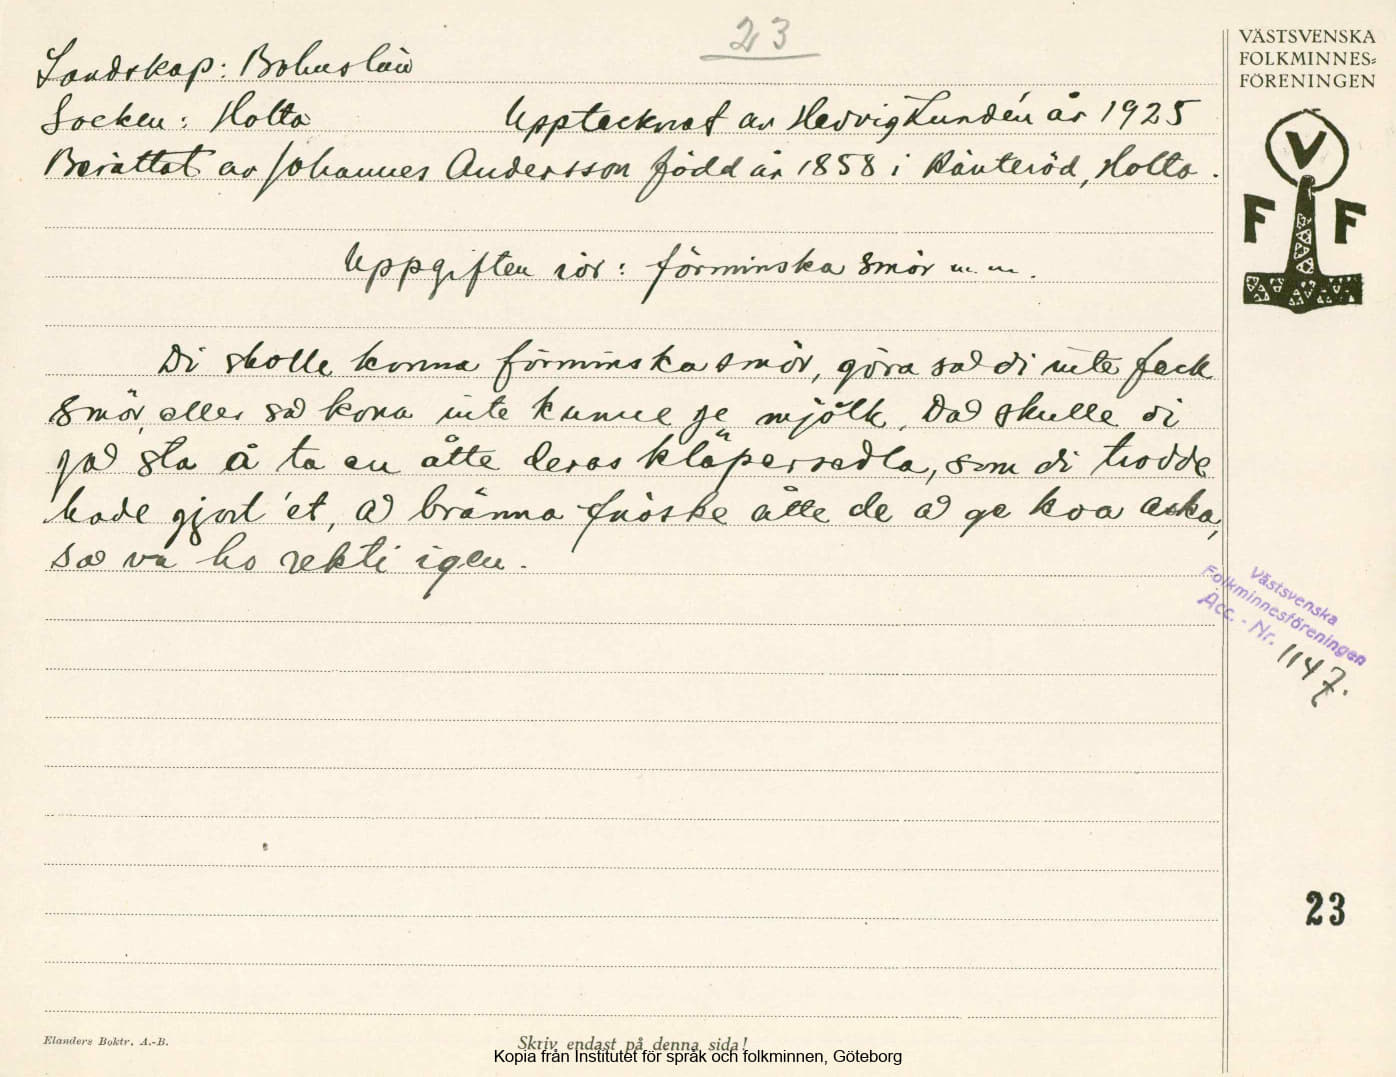 23
VÄSTSVENSKA
FOLKMINNES=
FÖRENINGEN
Landskap: Bohuslän
Socken: Holta Upptecknat av Hedvig Lundén år 1925
Berättat av Johannes Andersson född år 1858 i Ränteröd, Holta.
V
F F
Uppgiften rör: förminska smör m.m.
Di skolle konna förminska smör, göra sað di inte feck
smör, eller sað kona inte kunne ge mjölk. Dað skulle di
gað sta å ta en åtte deras kläpersedla, som di trodde
hade gjort 'et, að bränna fnöske åtte de að ge koa aska,
sað va ho rekti igen.
Västsvenska
Folkminnesföreningen
Acc. - Nr. 1147.
23
Elanders Boktr. A.-B.
Skriv endast på denna sida!
Kopia från Institutet för språk och folkminnen, Göteborg